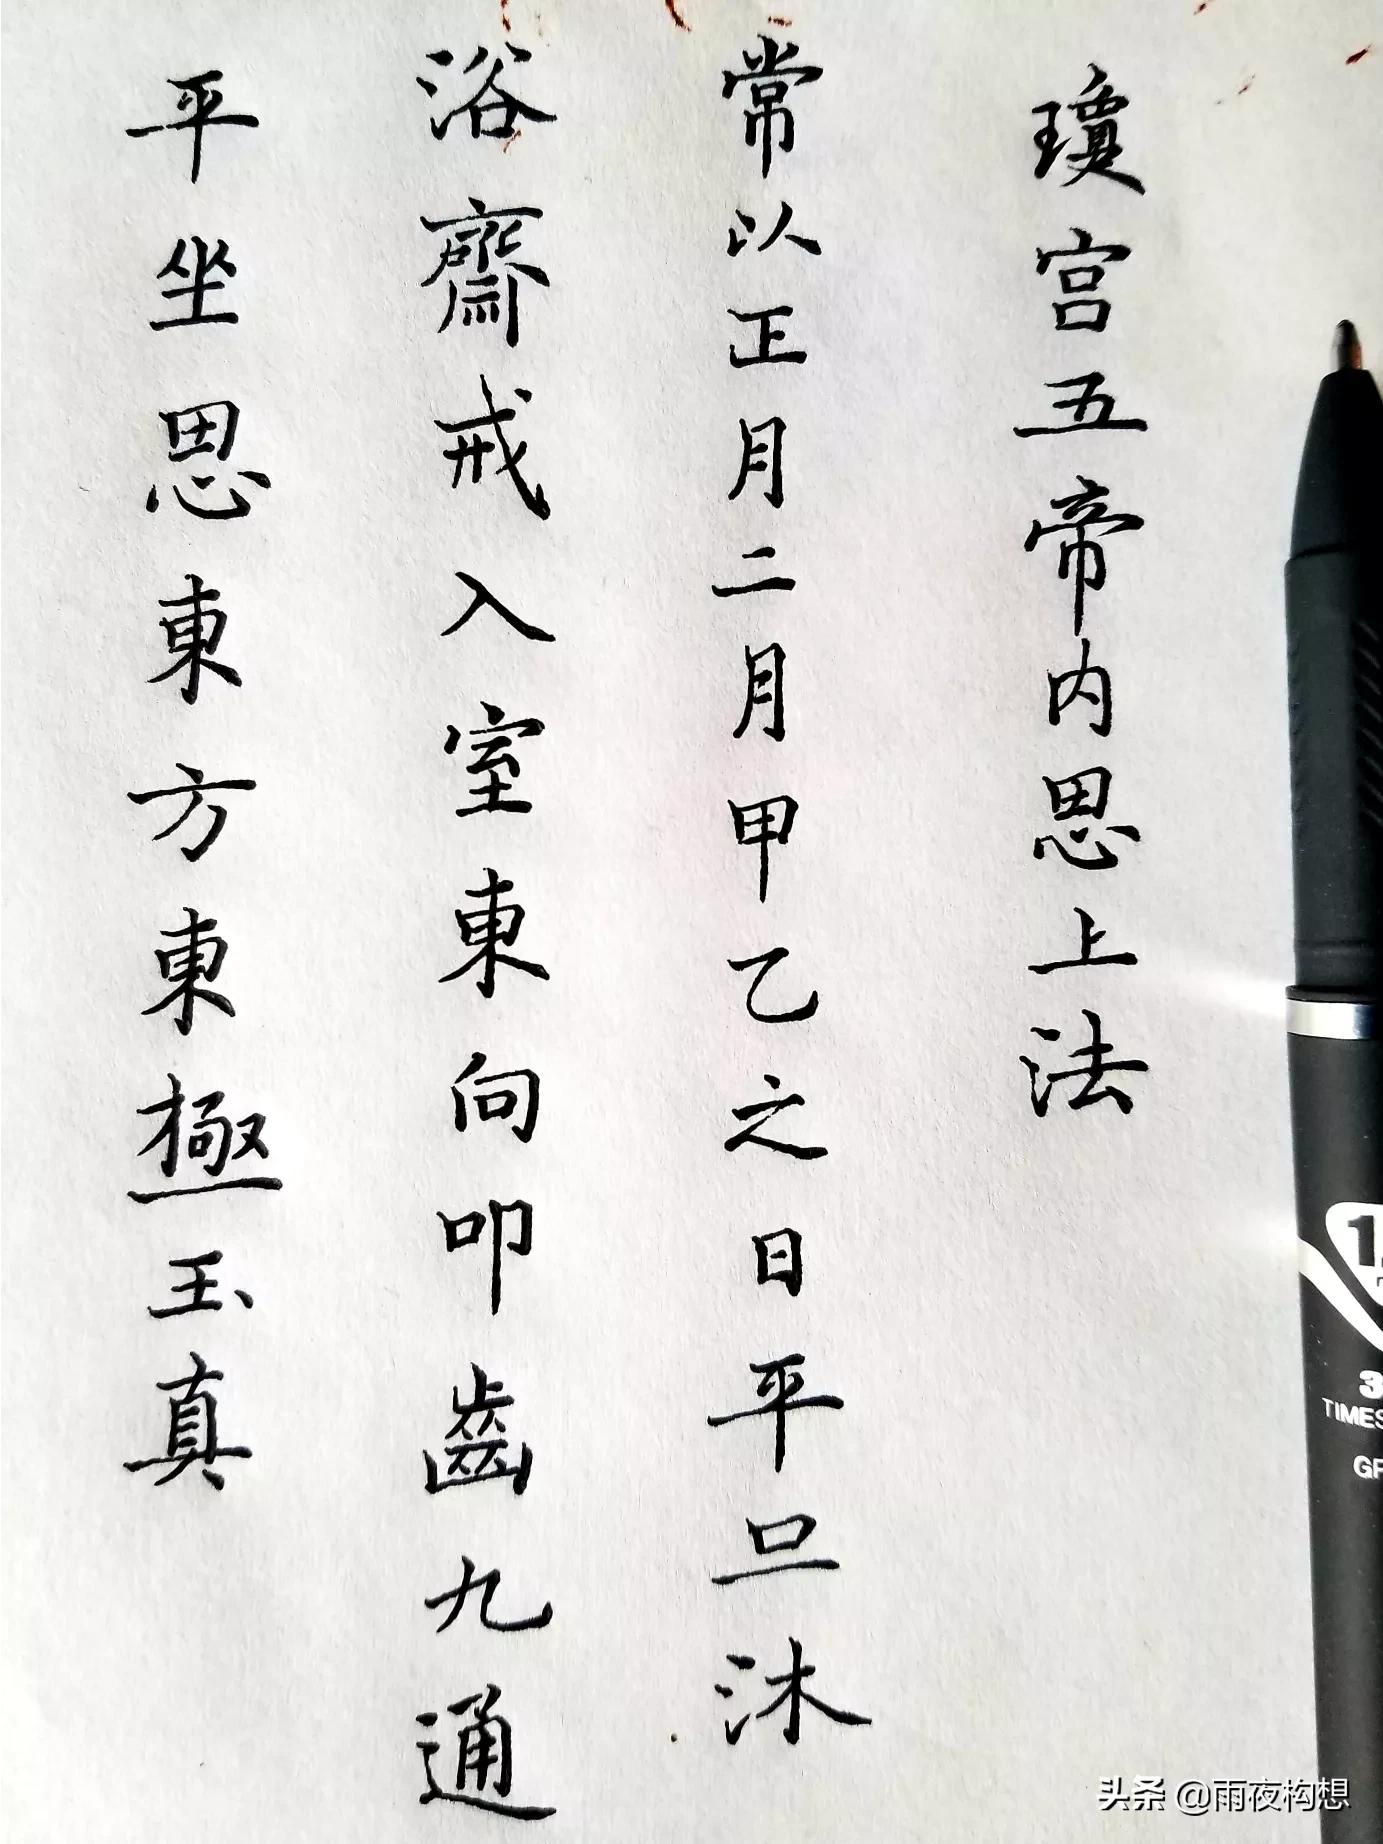 瓊宫五帝内思上法
常以正月二月甲乙之日平旦沐
浴齋戒入室東向叩齒九通
平坐思東方東極玉真
TIMES
头条 @雨夜构想